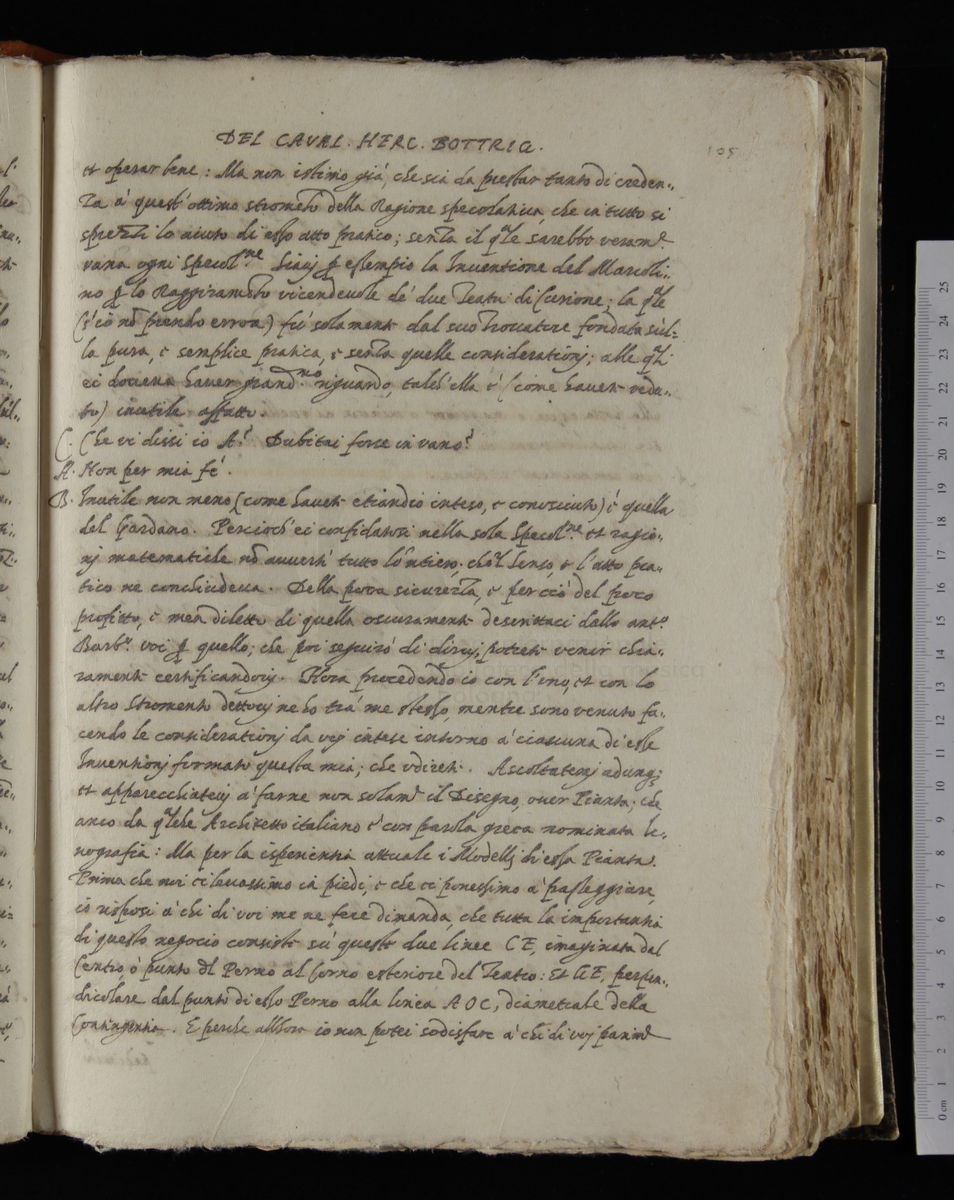 DEL CAVAL. HERC. BOTTRIG.
105
et operar bene: Ma non istimo già, che sia da prestar tanto di creden„
za à quest' ottimo stromẽto della Ragione specolatiua, che in tutto si
sprezzi lo aiuto di esso atto pratico; senza il q̃le sarebbe veram.te
vana ogni Specol.ne Siauj ꝑ essempio la Inuentione del Marcoli„
no ꝑ lo Raggiramẽto vicendeuole de' due Teatri di Curione; la q̃le
(s'io nõ prendo errore) fù solamente dal suo trouatore fondata sul„
la pura, e semplice pratica, e senza quelle considerationj; alle q̃li
ei doueua hauer grand.mo riguardo, talch'ella è (come hauete vedu„
to) inutile affatto.
C. Che vi dissi io A? Dubitai forse in vano?
A. Non per mia fé.
B. Inutile non meno (come hauete etiandio inteso, e conosciuto) è quella
del Cardano. Percioch' ei confidatosi nella sola Specol.ne et ragio„
nj matematiche nõ auuertì tutto lo 'ntiero, che'l senso, e l'atto pra„
tico ne conchiudeua. Della poca sicurezza, e per ciò del poco
profitto, e men diletto di quella oscuramente descrittaci dallo ant.o
Barb.o voi ꝑ quello; che poi seguirò di diruj, potrete venir chia„
ramente certificandouj. Hora procedendo io con l'uno, et con lo
altro stromento dettouj ne ho trà me stesso, mentre sono venuto fa„
cendo le considerationj da voj intese intorno à ciascuna di esse
Inuentionj formato questa mia; che vdirete. Ascoltatemj adunq;
et apparecchiateuj à farne non solam.te il Disegno, ouer Pianta; che
anco da q̃lche Architetto italiano è con parola greca nominata Ic„
nografia: Ma per la isperientia attuale i Modellj di essa Pianta.
Prima che noi ci leuassimo in piedi, e che ci ponessimo à passeggiare,
io risposi à chi di voi me ne fece dimanda, che tutta la importantia
di questo negocio consiste sù queste due linee CE, imaginata dal
Centro, ò punto del Perno al Corno esteriore del Teatro: Et GE, perpen„
dicolare dal punto di esso Perno alla linea AOC, diametrale della
Contingentia. E perche allhora io non potei sodisfare à chi di voj parim.te